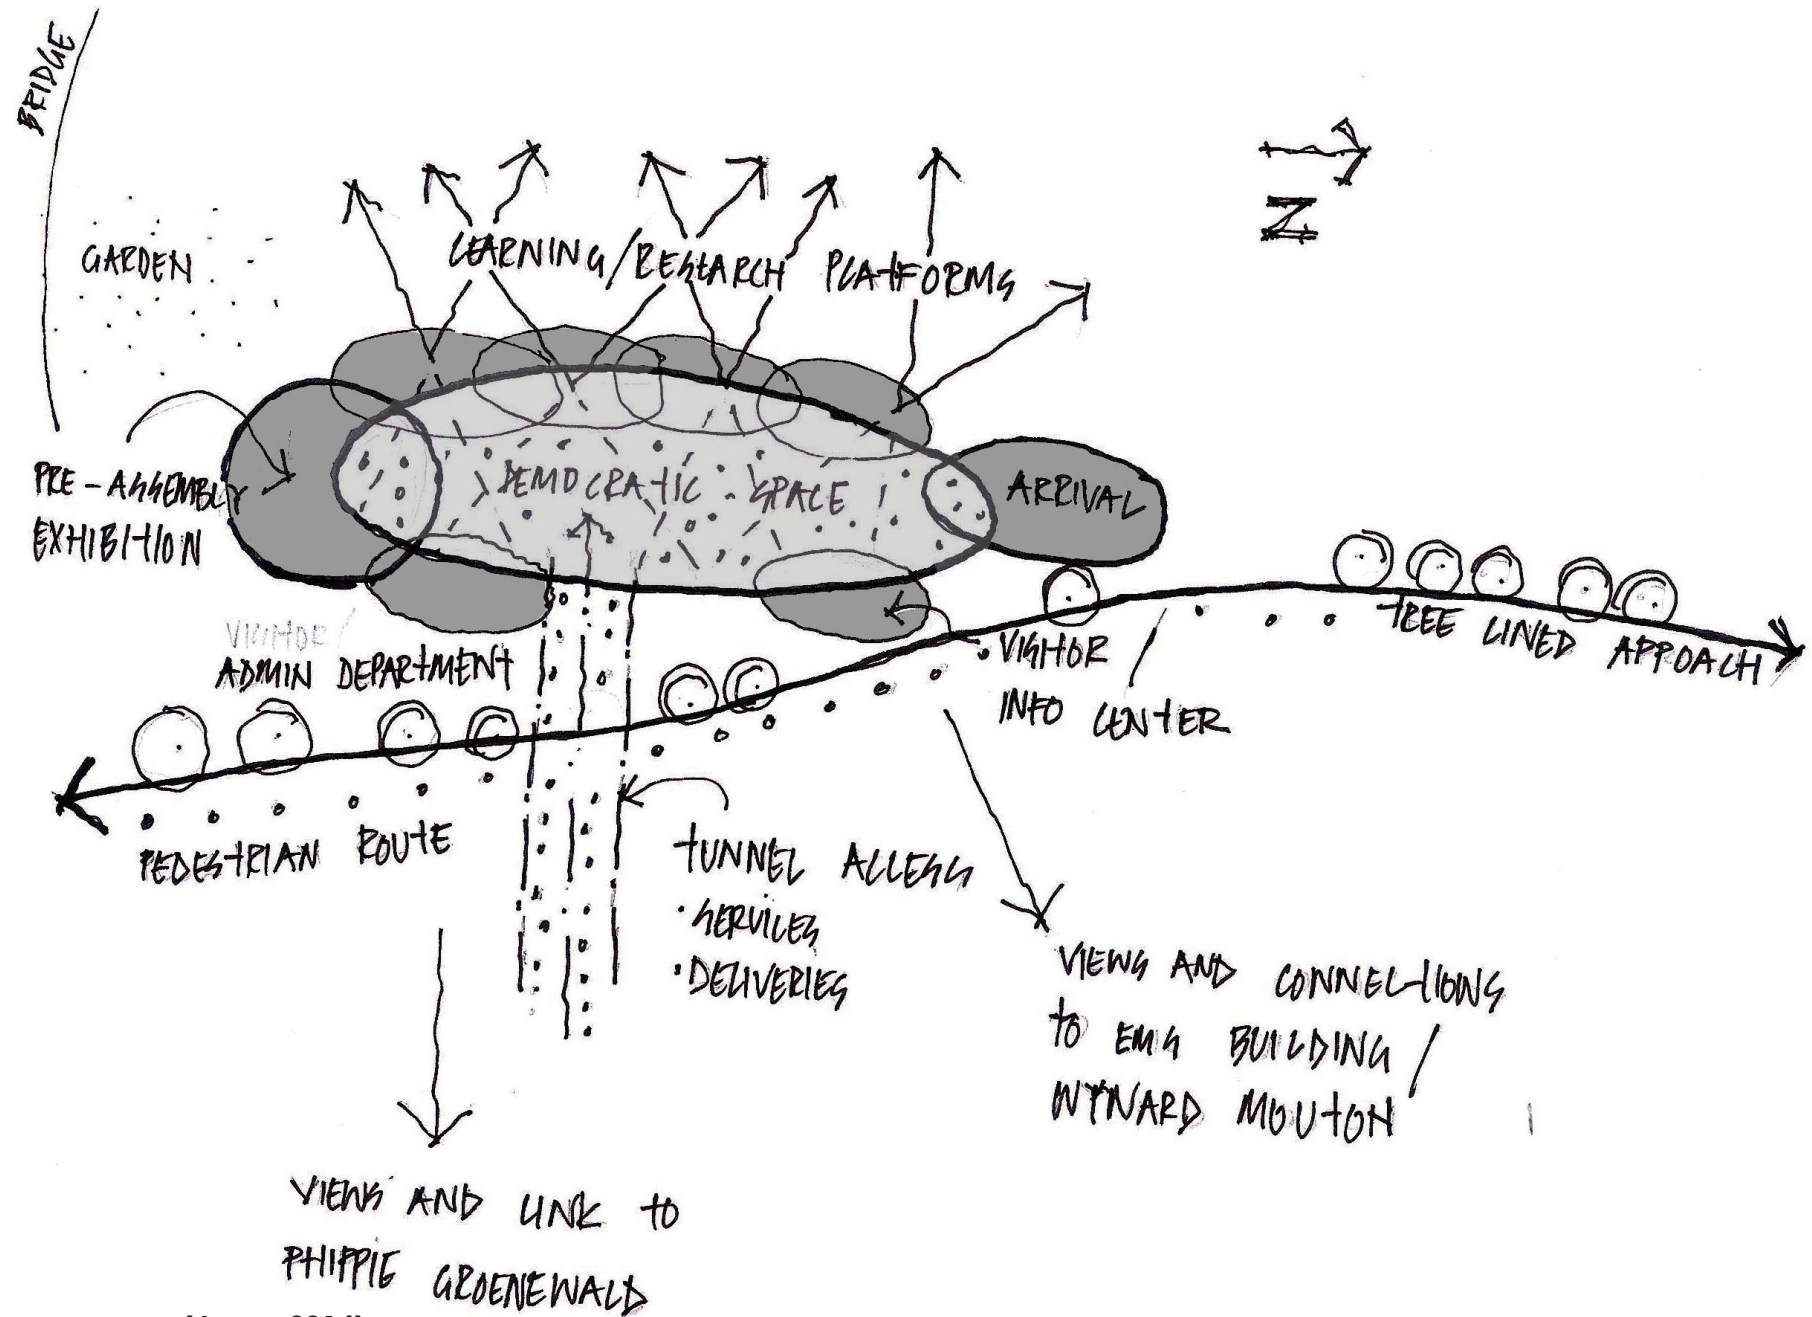 BRIDGE
N
GARDEN
LEARNING/RESEARCH PLATFORMS
PRE-ASSEMBLY
EXHIBITION
DEMOCRATIC SPACE
ARRIVAL
VISITOR/
ADMIN DEPARTMENT
VISITOR /
INFO CENTER
TREE LINED APPROACH
PEDESTRIAN ROUTE
TUNNEL ACCESS
·SERVICES
·DELIVERIES
VIEWS AND CONNECTIONS
TO EMS BUILDING /
WYNARD MOUTON
VIEWS AND LINK TO
PHIPPIE GROENEWALD